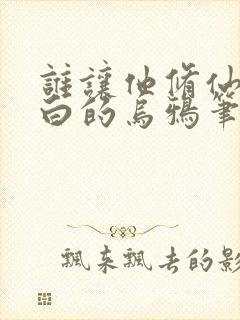 誰讓他修仙
白的烏鴉筆
飄來飄去的影